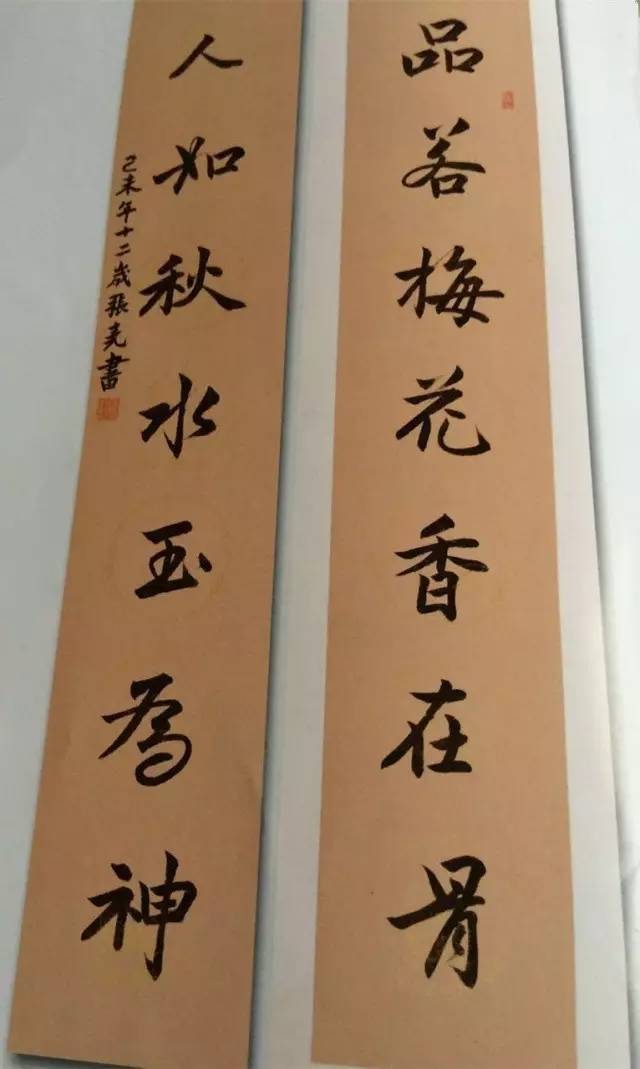 品若梅花香在骨
人如秋水玉為神
己未年十二歲張堯書